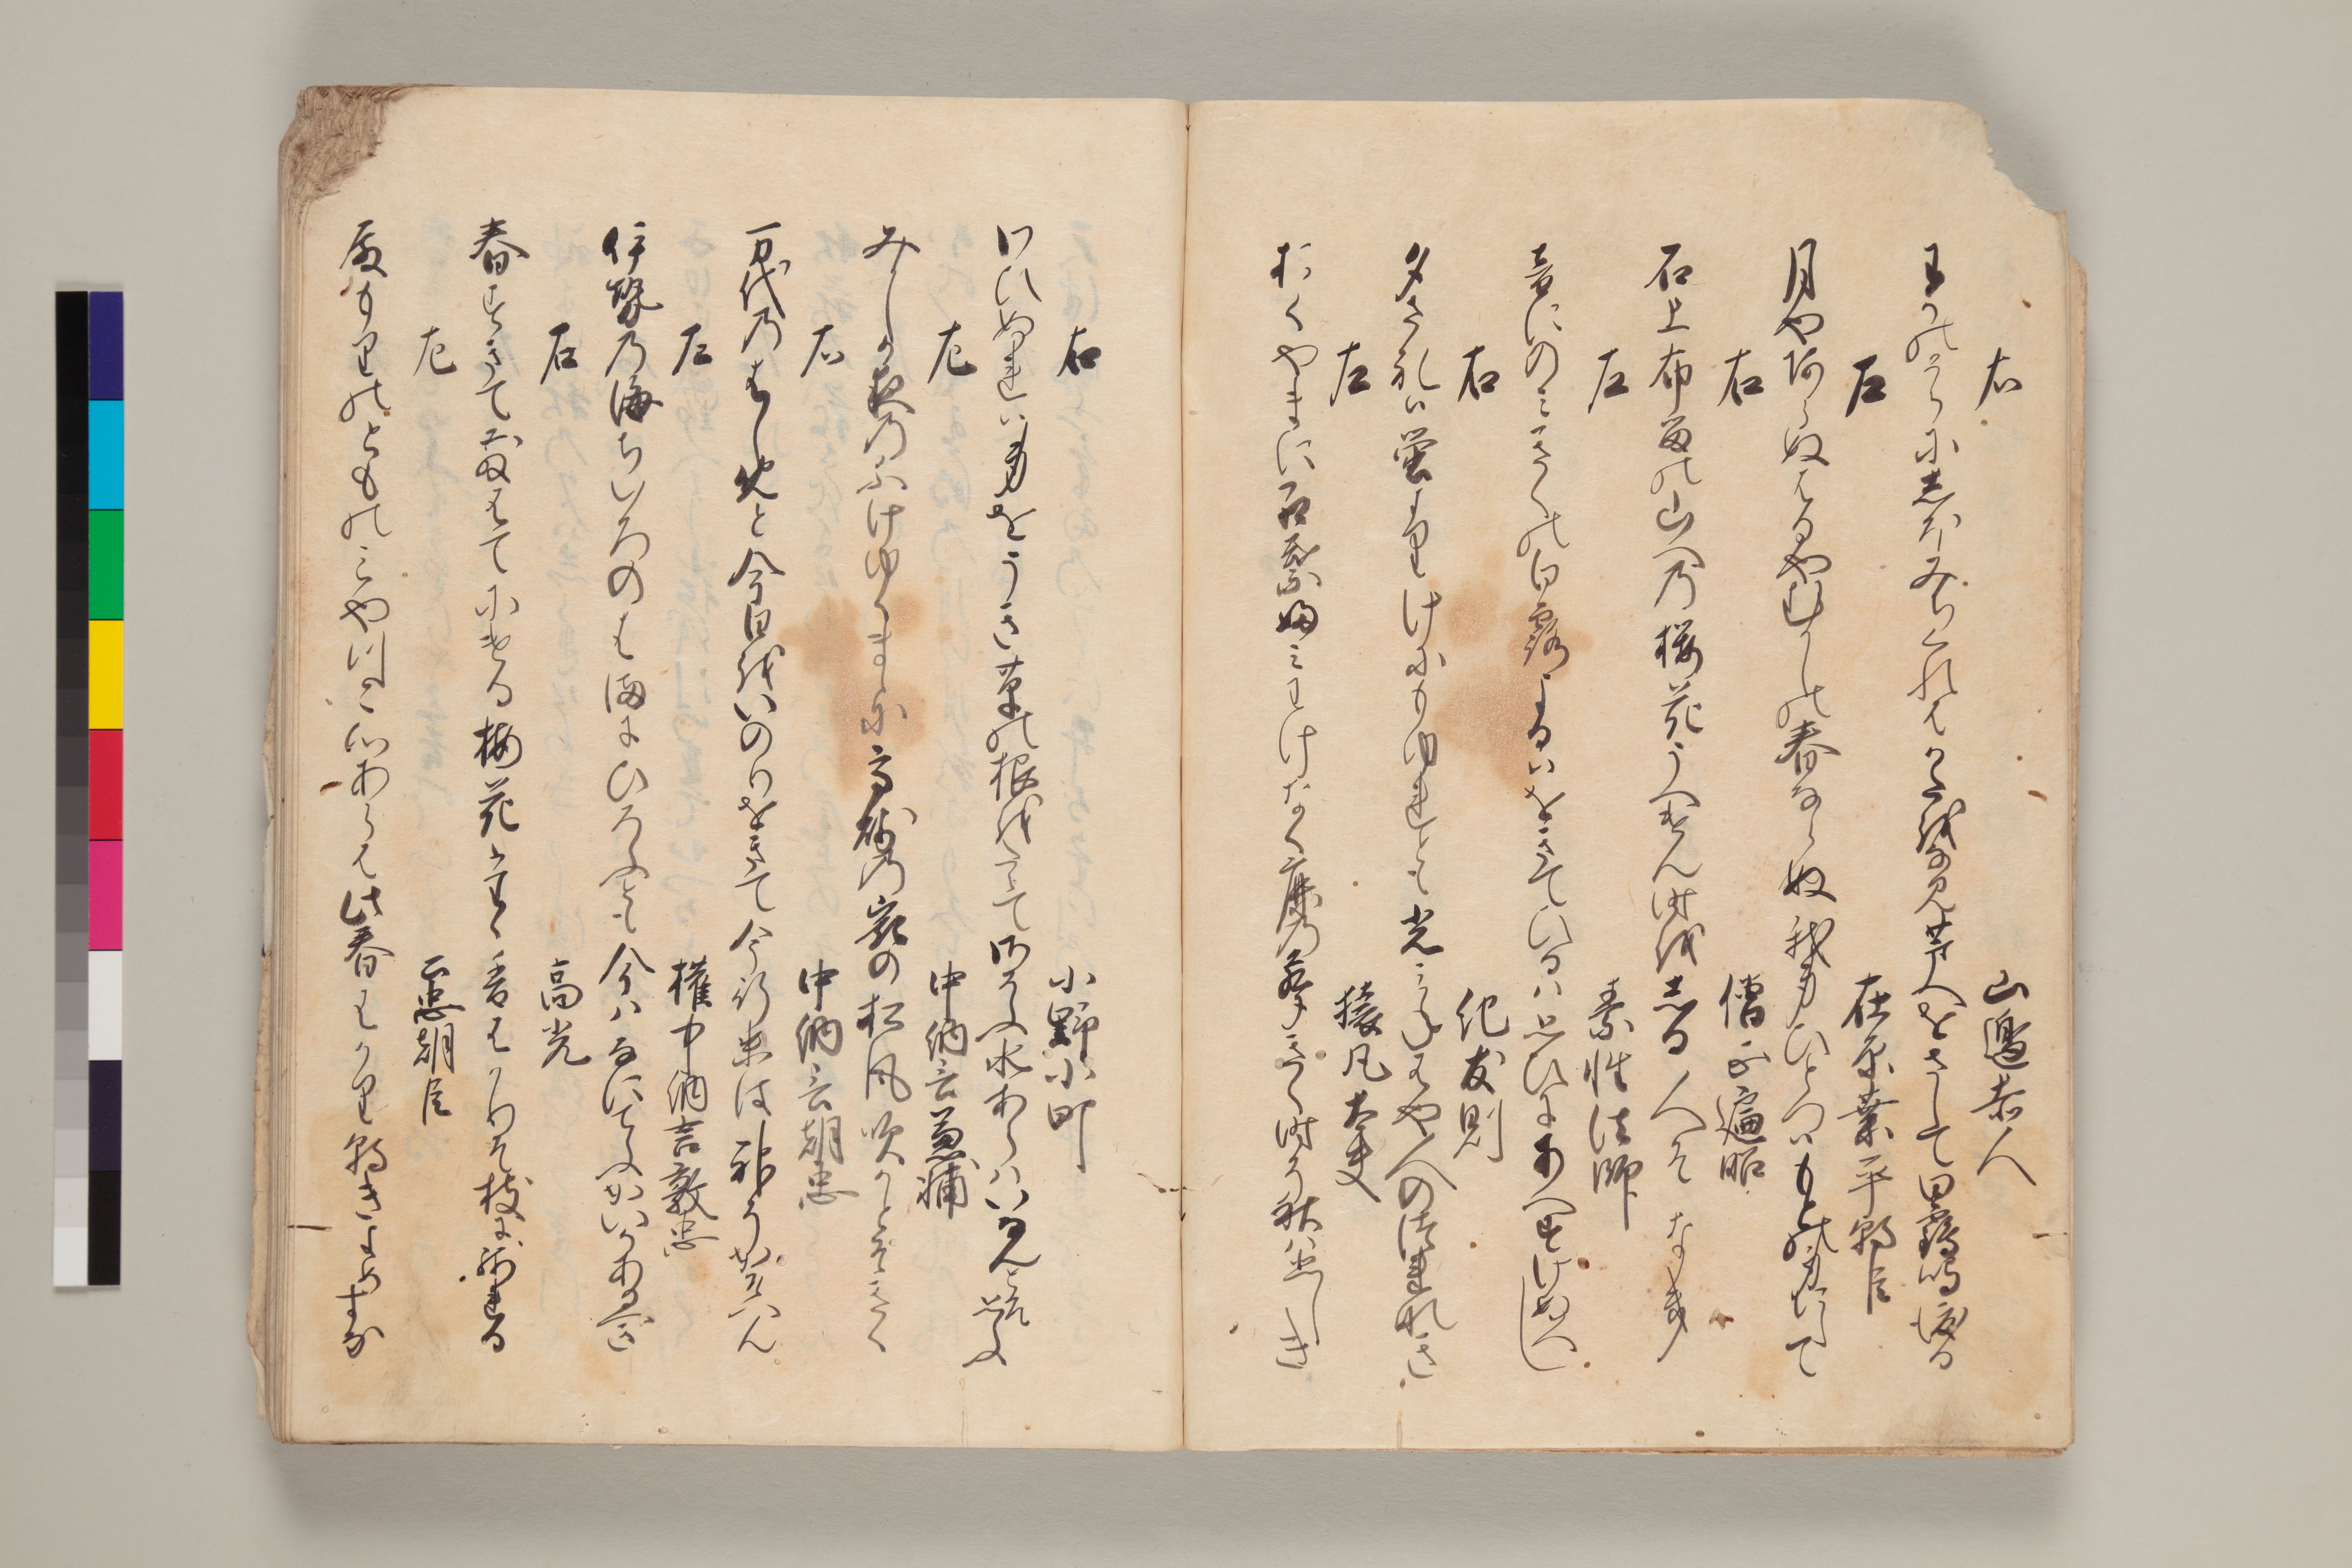 右 山邊赤人
わかのうらに志ほみちくれはかたを無見芦へをさして田靏鳴渡る
左 在原業平朝臣
月や阿らぬはるやむかしの春ならぬ我身ひとつハもとの身にして
右 僧正遍昭
石上布留の山へ乃櫻花うへけん時を志る人そなき
左 素性法師
音にのミきくの白露よるハをきてひるハ思ひにあへすけぬへし
右 紀友則
夕されハ蛍よりけにもゆれとも光ミねはや人のつれなき
左 猿丸大夫
おくやまに紅葉ふミわけなく鹿の聲きく時そ秋ハ悲しき
右 小野小町
わひぬれハ身をうき草の根をたえてさそふ水あらハいなんとそ思ふ
左 中納言兼輔
みしか夜のふけゆくまゝに高砂の峯の松風吹かとそきく
右 中納言朝忠
万代乃はしめと今日をいのりをきて今行末は神そかそへん
左 權中納言敦忠
伊勢乃海ちいろのはまにひろふとも今ハなにてふかいかあるへき
右 高光
春すきてちりはてにける梅花たゝ香はかりそ枝に残れる
左 忠朝臣
殿もりのとものミやつこ心あらは此春はかり朝きよめすな